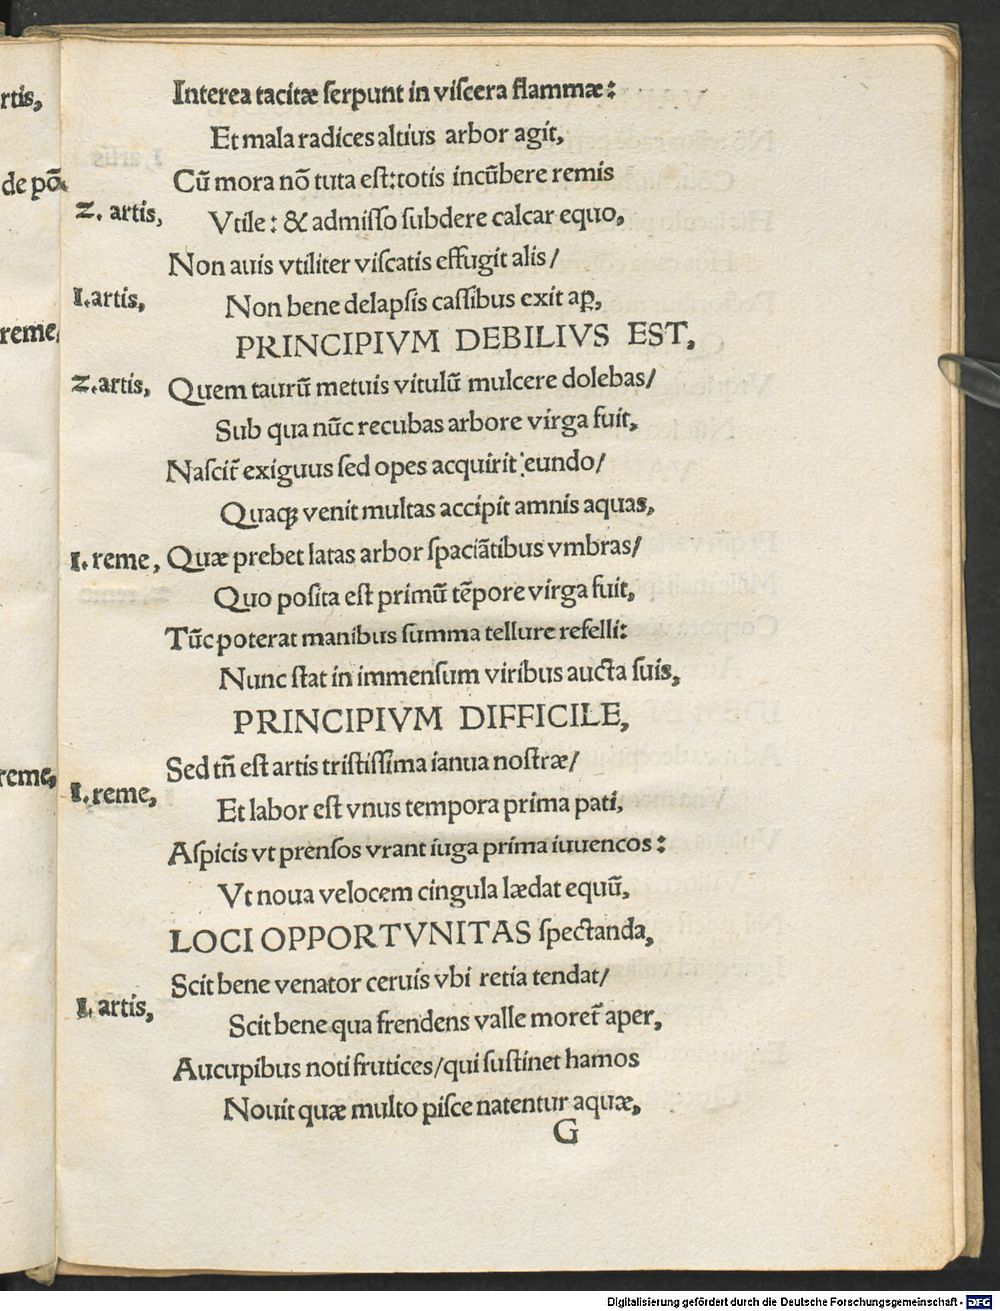 rtis,
de põ.
reme,
reme,
Interea tacitæ ſerpunt in viſcera flammæ:
Et mala radices altius arbor agit,
Cũ mora nõ tuta eſt: totis incũbere remis
2. artis, Vtile: & admiſſo ſubdere calcar equo,
Non auis vtiliter viſcatis effugit alis/
I. artis, Non bene delapſis caſſibus exit ap̱,
PRINCIPIVM DEBILIVS EST,
2. artis, Quem taurũ metuis vitulũ mulcere dolebas/
Sub qua nũc recubas arbore virga fuit,
Naſcit᷑ exiguus ſed opes acquirit eundo/
Quaqꝫ venit multas accipit amnis aquas,
I. reme, Quæ prebet latas arbor ſpaciãtibus vmbras/
Quo poſita eſt primũ tẽpore virga fuit,
Tũc poterat manibus ſumma tellure refelli:
Nunc ſtat in immenſum viribus aucta ſuis,
PRINCIPIVM DIFFICILE,
Sed tñ eſt artis triſtiſſima ianua noſtræ/
I. reme, Et labor eſt vnus tempora prima pati,
Aſpicis vt prenſos vrant iuga prima iuuencos:
Vt noua velocem cingula lædat equũ,
LOCI OPPORTVNITAS ſpectanda,
Scit bene venator ceruis vbi retia tendat/
I. artis, Scit bene qua frendens valle moret᷑ aper,
Aucupibus noti frutices/qui ſuſtinet hamos
Nouit quæ multo piſce natentur aquæ,
G
Digitalisierung gefördert durch die Deutsche Forschungsgemeinschaft - DFG